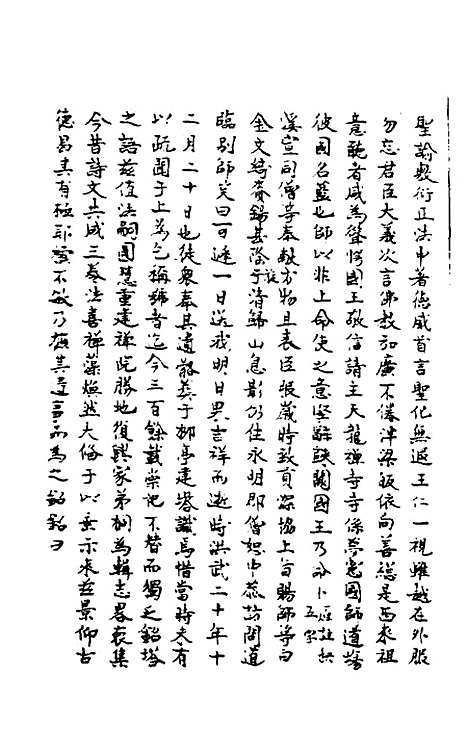 聖諭敷衍正法中著德威首言聖化無遐王仁一視雖越在外服
勿忘君臣大義次言佛教加廣不倦津梁皈依向善總是西來祖
意聽者咸為聳愕國王敬信請主天龍禪寺寺係夢窓國師道場
彼國名藍也師以非上命使之意堅辭缺闕國王乃命卜烜註缺五字
溪宣司僧等奉敕方物且表臣張歲時致貢深協上旨賜師等白
金文綺賚錫甚隆于後請歸山息影仍住永明郡僧恕中恭坊問道
臨別師笑曰可遲一日送我明日果吉祥而逝時洪武二十年十
二月二十日也徒衆奉其遺骸葬于柳亭建塔識焉惜當時未有
以疏聞于上為乞稱號者迄今三百餘載崇祀不替而獨乏銘塔
之語茲值法嗣圓慧重建禪院勝地復興家弟桐為輯志畧裒集
今昔詩文共成三卷法喜禪藻煥然大備于以垂示來茲景仰古
德曷其有極耶瑩不敏乃摭其遺言而為之銘銘曰